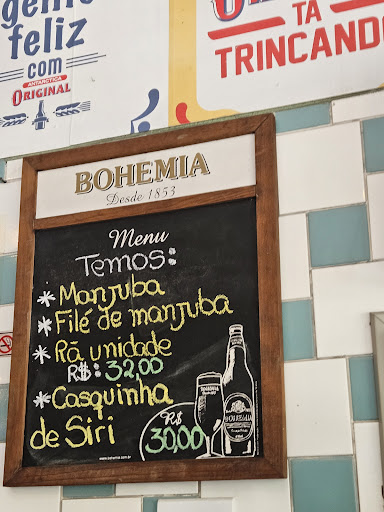 gente
feliz
com
ANTARCTICA
ORIGINAL
TA
TRINCANDO
BOHEMIA
Desde 1853
Menu
Temos:
* Manjuba
* Filé de manjuba
* Rã unidade
R$: 32,00
* Casquinha
de Siri R$
30,00
BOHEMIA
www.bohemia.com.br